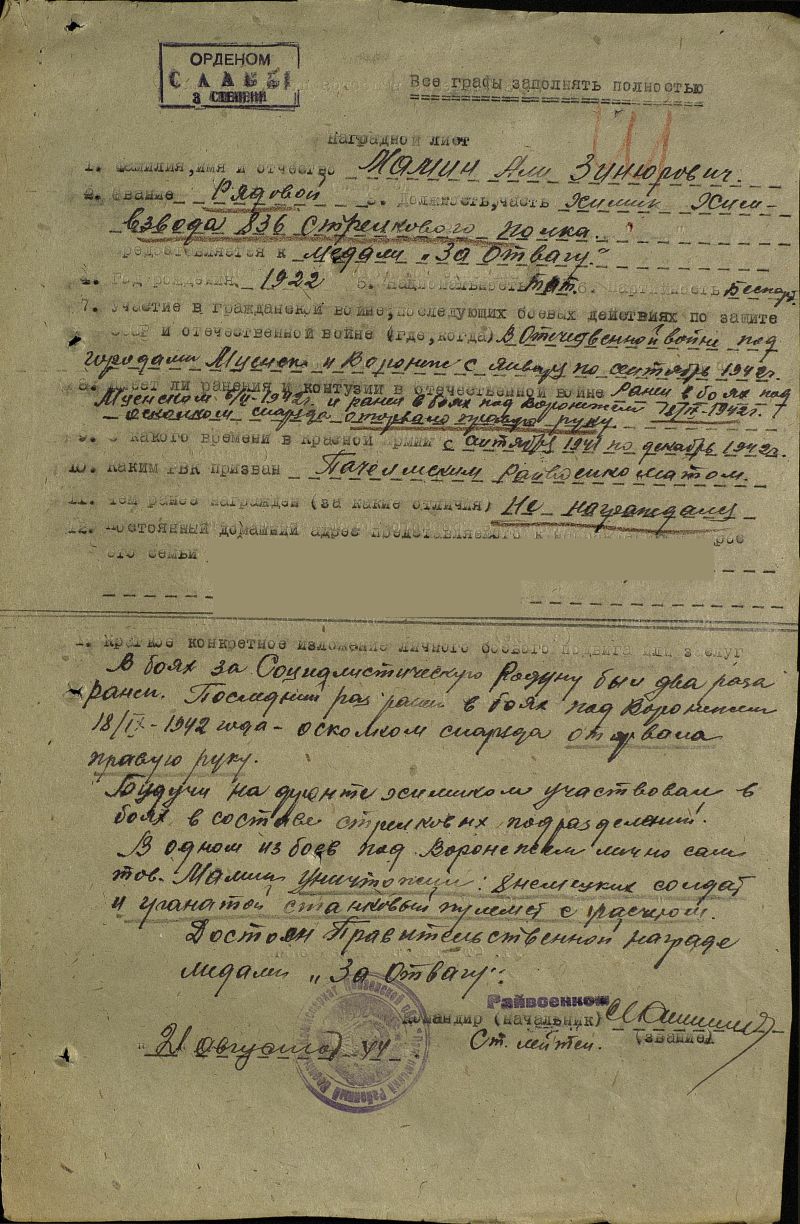 ОРДЕНОМ
СЛАВЫ
3 СТЕПЕНИ
Все графы заполнять полностью
Наградной лист
1. Фамилия, имя и отчество Мамин Али Зинюрович.
2. Звание Рядовой 3. Должность, часть Химик Хим-
взвода 836 стрелкового полка.
представляется к медали "За Отвагу".
4. Год рождения 1922 5. Национальность Тат. 6. Партийность Беспарт.
7. Участие в гражданской войне, последующих боевых действиях по защите
СССР и отечественной войне (где, когда) В Отечедвенной войне под
городами Мценск и Воронеж с января по сентябрь 1942 г.
8. Имеет ли ранения и контузии в отечественной войне Ранен в боях под
Мценском 1942 г. и ранен в боях под Воронежем 18/IX-1942 г.
осколком снаряда оторвало правую руку.
9. С какого времени в Красной Армии с сентября 1941 по декабрь 1942 г.
10. Каким РВК призван Пачелмским Райвоенкоматом.
11. Чем ранее награжден (за какие отличия) Не награждался
12. Постоянный домашний адрес представляемого к
его семьи
1. Краткое конкретное изложение личного боевого подвига или заслуг
В боях за Социалистическую Родину был два раза
ранен. Последний раз ранен в боях под Воронежем
18/IX-1942 года - осколком снаряда оторвала
правую руку.
Будучи на фронте химиком участвовал в
боях в составе стрелковых подразделений.
В одном из боев под Воронежем лично сам
тов. Мамин уничтожил: 8 немецких солдат
и гранатой станковый пулемет с расчетом.
Достоен Правительственной награде
медали "За Отвагу".
Райвоенком
Командир (начальник)
21 августа 44 Ст. лейтен. (звание)